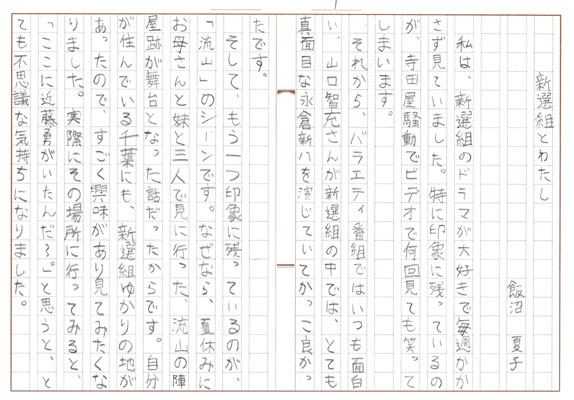 新選組とわたし
飯沼　夏子
私は、新選組のドラマが大好きで毎週かか
さず見ていました。特に印象に残っているの
が、寺田屋騒動でビデオで何回見ても笑って
しまいます。
それから、バラエティ番組ではいつも面白
い、山口智充さんが新選組の中では、とても
真面目な永倉新八を演じていてかっこ良かっ
たです。
そして、もう一つ印象に残っているのが、
「流山」のシーンです。なぜなら、夏休みに
お母さんと妹と三人で見に行った、流山の陣
屋跡が舞台となった話だったからです。自分
が住んでいる千葉にも、新選組ゆかりの地が
あったので、すごく興味があり見てみたくな
りました。実際にその場所に行ってみると、
「ここに近藤勇がいたんだ〜。」と思うと、と
ても不思議な気持ちになりました。